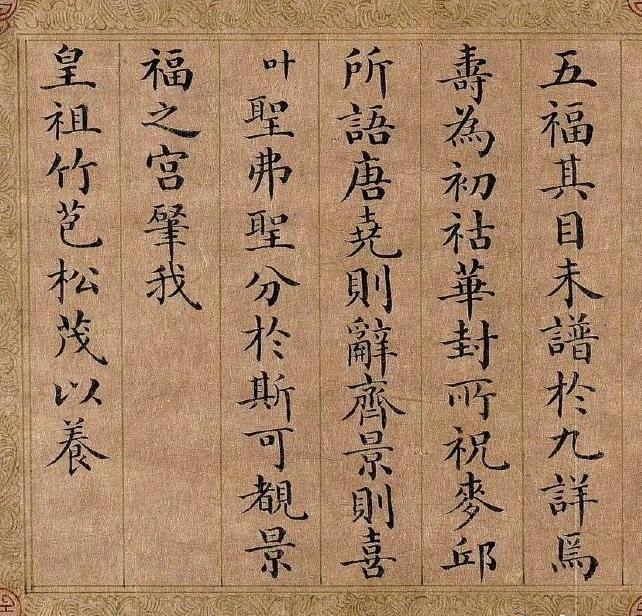 五福其目未譜於九詳焉
壽為初祜華封所祝麥邱
所語唐堯則辭齊景則喜
叶聖弗聖分於斯可覩景
福之宫肇我
皇祖竹苞松茂以養